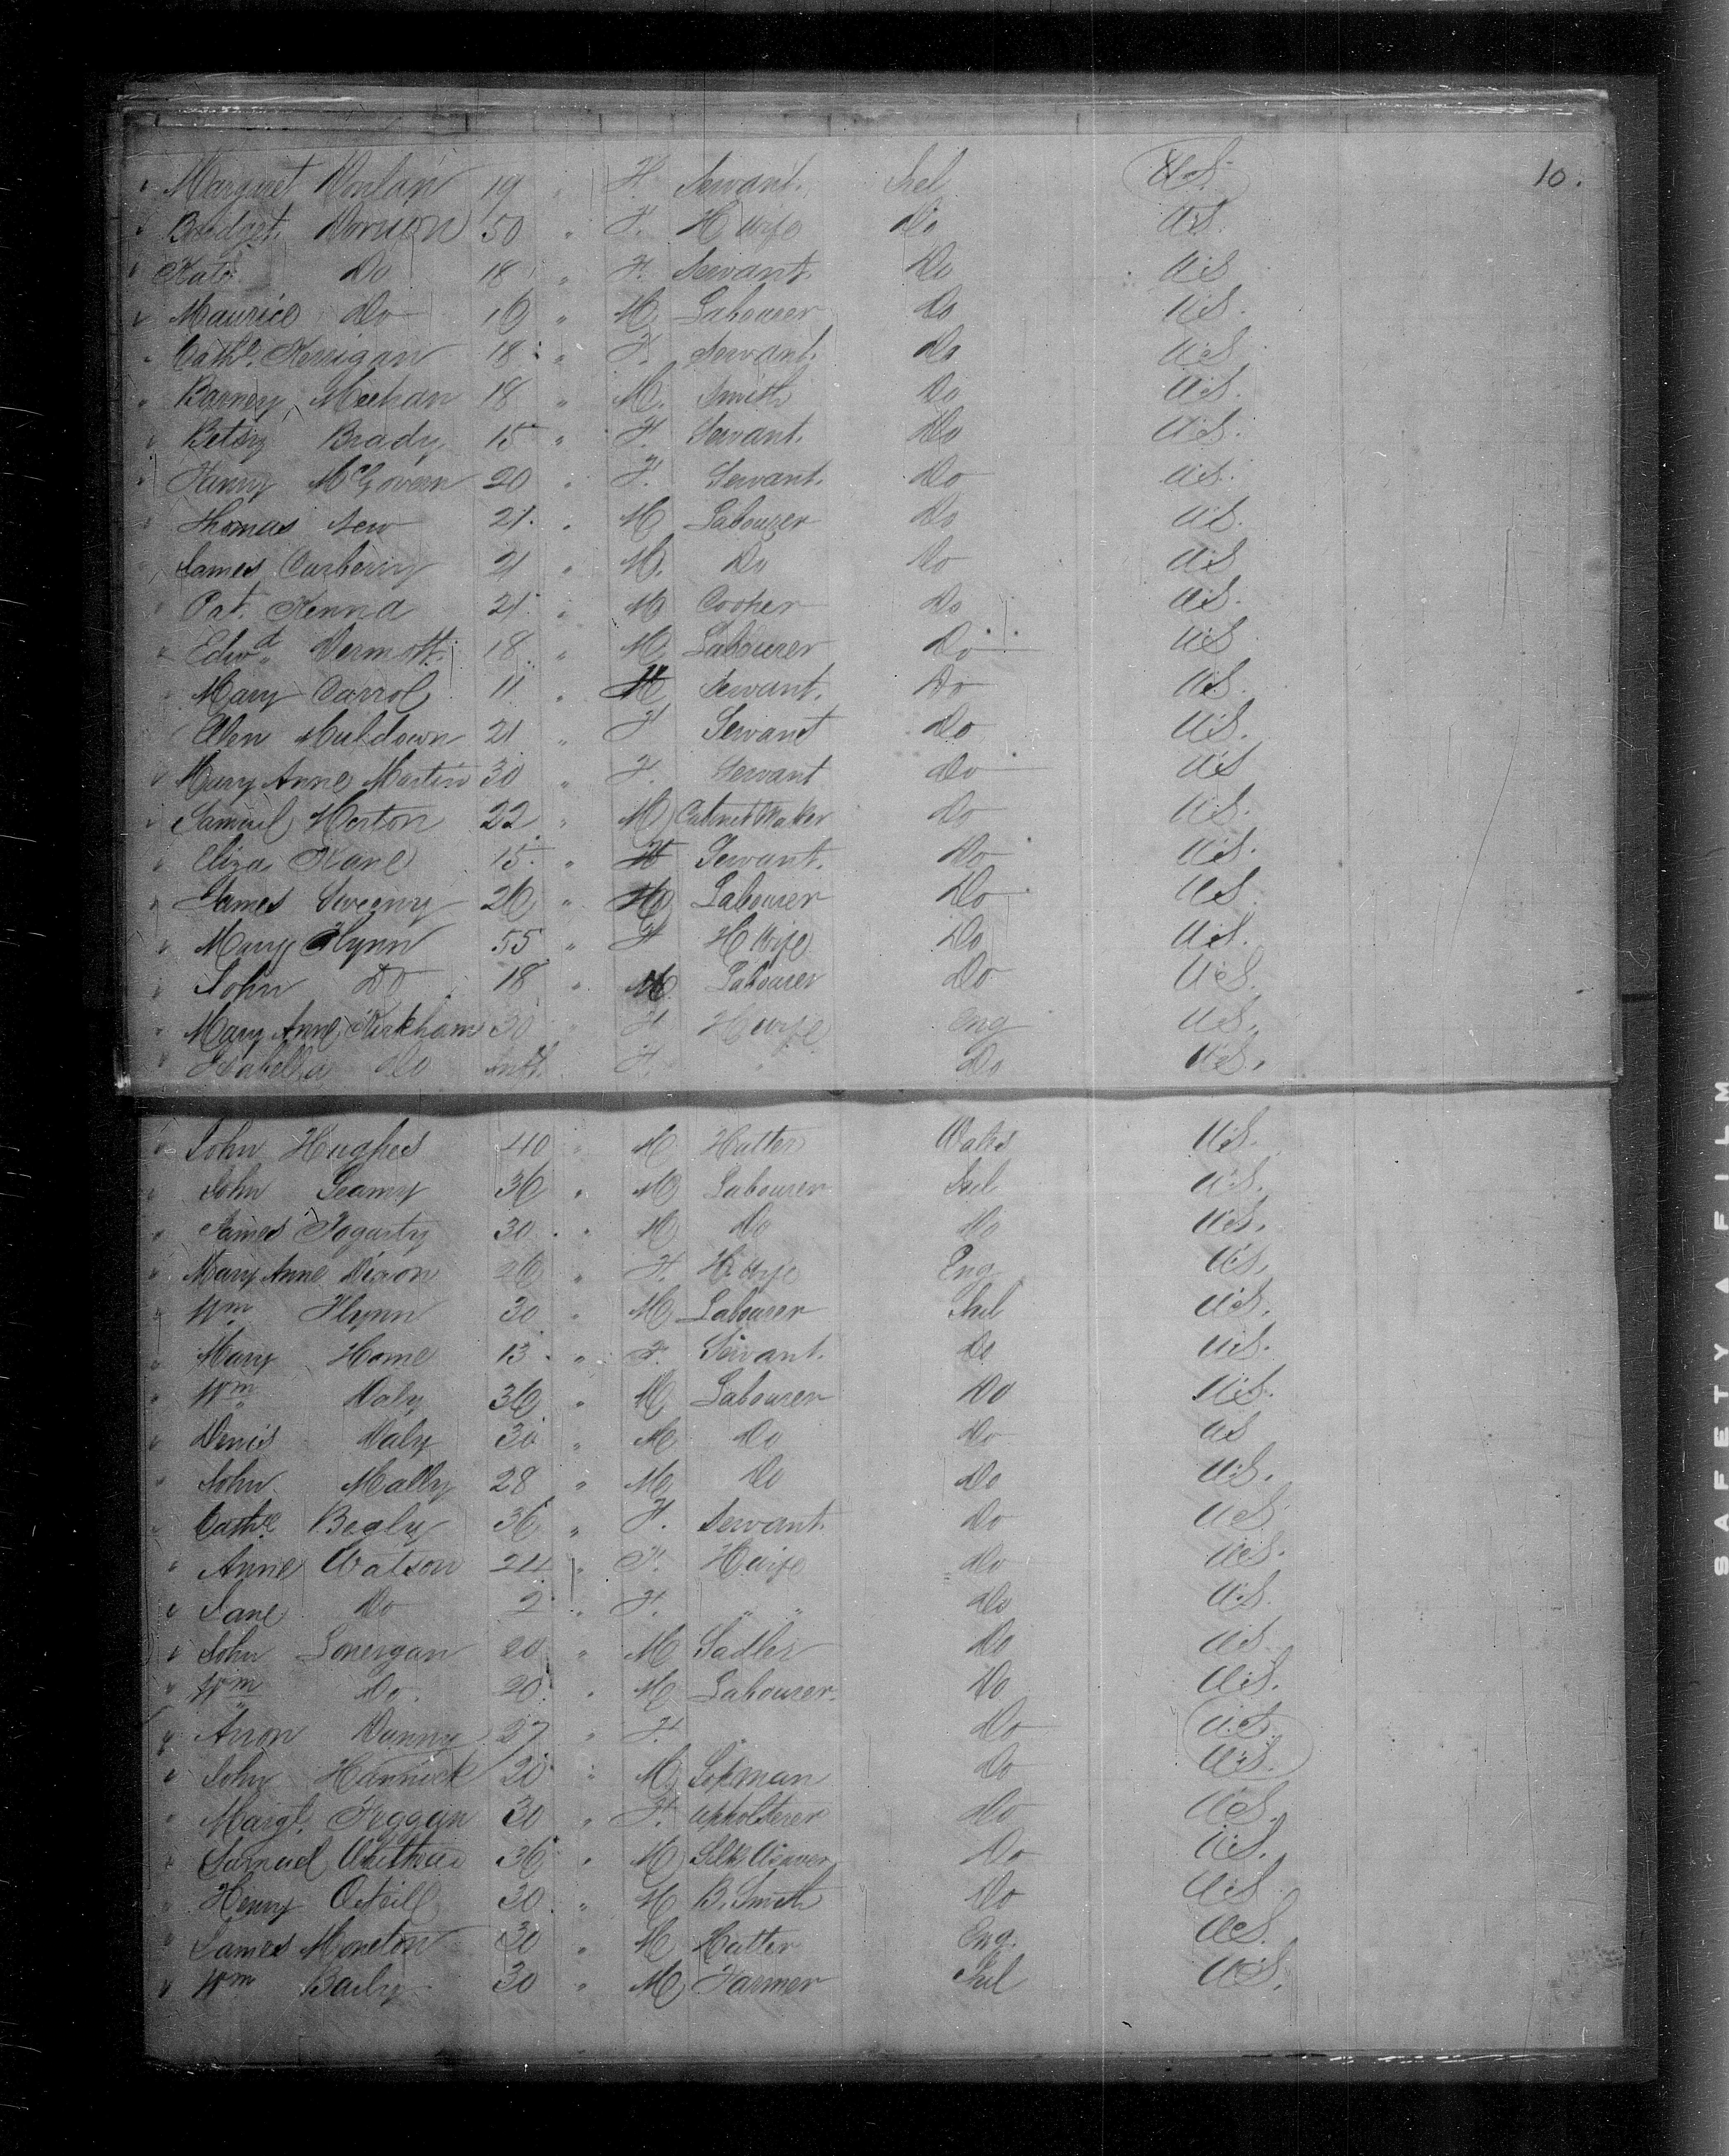 10.
" Margret Donlan 19 " F. Servant. Irel U.S.
" Bridget 50 " F. H Wife Do U.S.
" Kate Do 18 " F. Servant. Do U.S
" Maurice Do 16 " M Labourer Do U.S.
" Cathe. Kerrigan 18 " F. Servant. Do U.S
" Barney Meehan 18 " M. Smith Do U.S.
" Betsy Brady 15 " F. Servant. Do U.S.
" Fanny McGovern 20 " F. Servant. Do U.S.
" Thomas New 21. " M Labourer Do U.S.
" James Carberry 21 " M. Do Do U.S
" Pat. Kenna 21 " M Cooper Do U.S.
" Edwd. Dermott. 18 " M Labourer Do U.S
" Mary Carrol 11 " F Servant. Do U.S.
Ellen Muldown 21 " F Servant Do U.S.
" Mary Anne Martin 30 " F. Servant Do U.S
" Samuel Horton 22 " M Cabinet Maker Do U.S.
" Eliza Kane 15. " F Servant. Do U.S.
" James Sweeny 26 " M Labourer Do U.S.
" Mary Flynn 55 " F H Wife Do U.S.
" John Do 18 " M. Labourer Do U.S.
" Mary Anne Kirkham 30 " F H wife Eng U.S.
" Isabella Do Inft. F. " Do U.S.
" John Hughes 40 " M Hatter Wales U.S.
" John Leamy 36 " M Labourer Irel U.S.
" James Fogarty 30 " M Do Do U.S.
" Mary Anne Dixon 26 " F. H. Wife Eng U.S.
" Wm. Flynn 30 " M Labourer Irel U.S.
" Mary Home 13 " F. Servant. Do U.S.
" Wm. Daly 36 " M Labourer Do U.S.
" Denis Daly 30 " M Do Do U.S
" John Mally 28 " M Do Do U.S.
" Cathe Begly 36 " F. Servant. Do U.S
" Anne Watson 24 " F. H wife Do U.S.
" Jane Do 2 " F. " " Do U.S.
" John Lonergan 20 " M Sadler Do U.S
" Wm Do. 20 " M Labourer. Do U.S.
" Dunny 27 " F. Do U.S.
" John Hannick 20 " M Do U.S.
" Margt. Feggan 30 " F. upholsterer Do U.S.
" Samuel 36 " M Silk Weaver Do U.S.
" Henry ONeill 30 " M B. Smith Do U.S
" James Moreton 30 " M Hatter Eng. U.S.
" Wm Baily 30 " M Farmer Irel U.S.
SAFETY A FILM